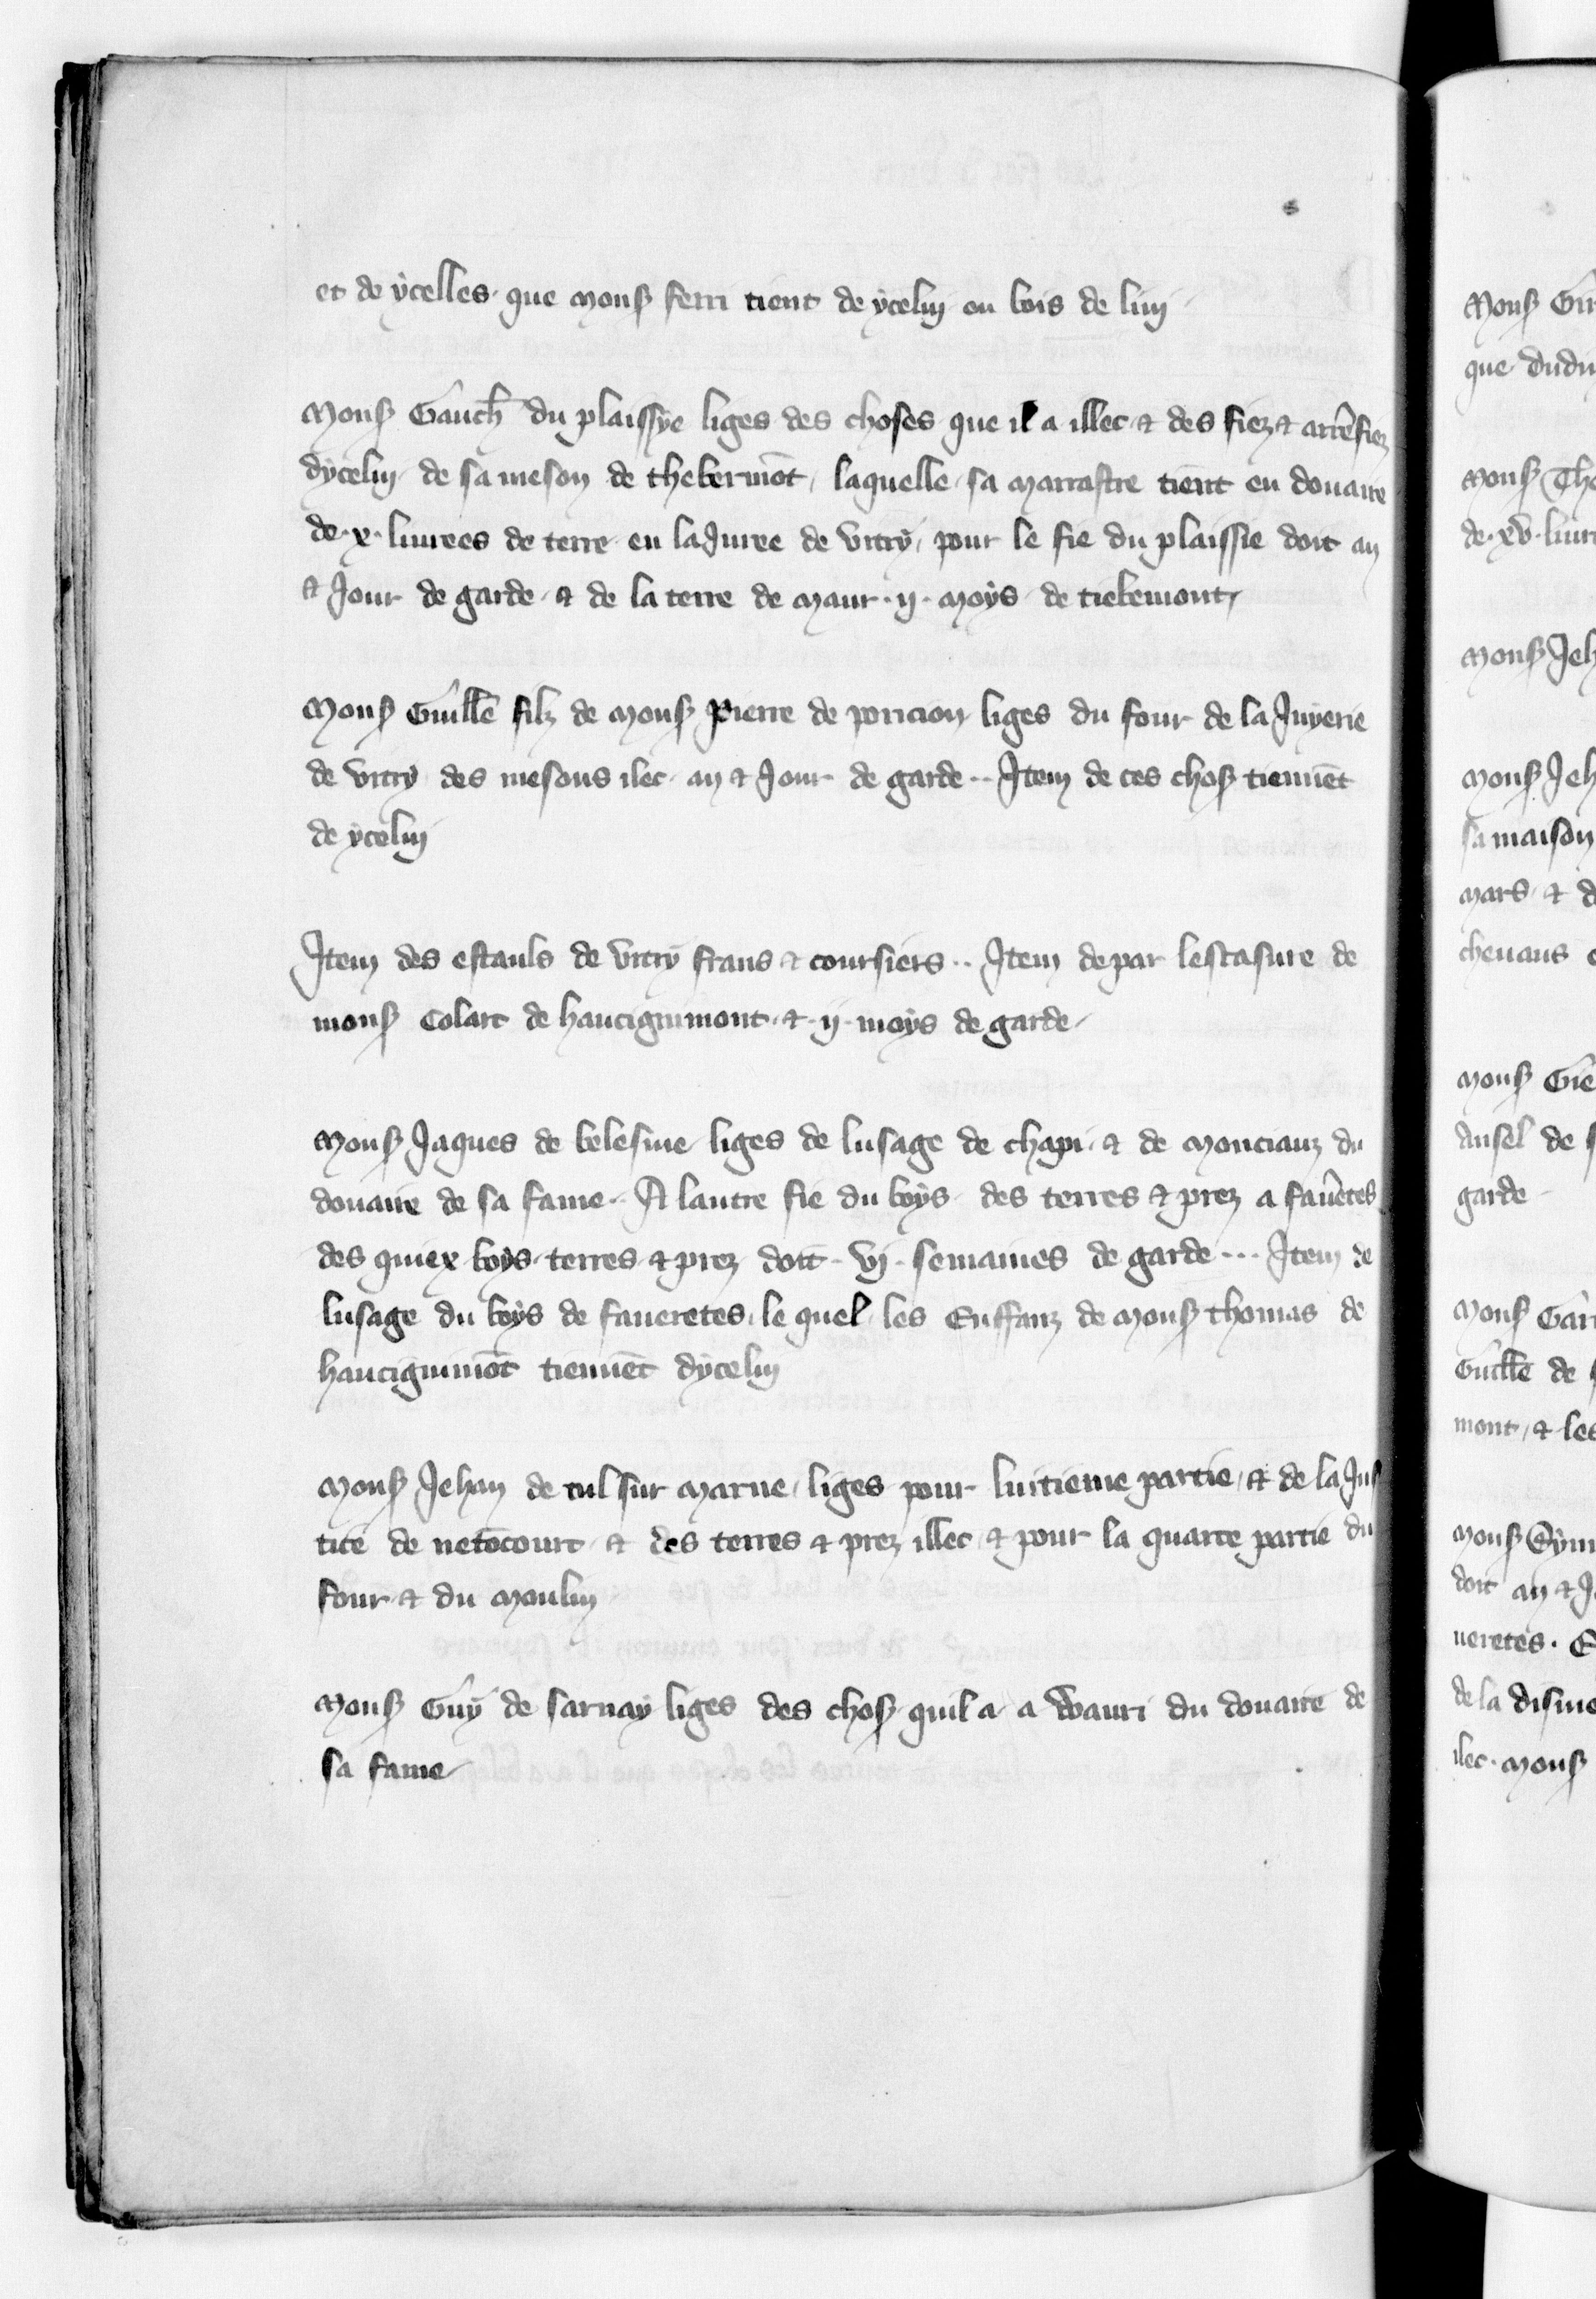 et de ycelles que mons ferri tient de ycelui ou bois de luy
Mons Gauch du plaissye liges des choses que il a illec & des fiez & arrefiez
dycelui de sa meson de thebermōt laquelle sa marrastre tient en douaire
de x liurees de terre en la Juree de vitry pour le fie du plaissie doit an
& Jour de garde & de la terre de maur ij moys de tiebemont
Mons Guillē filz de mons Pierre de poricion liges du four de la Juyerie
de vitry des mesons ilec an & Jour de garde Item de ces chos tiennēt
de ycelui
Item des estauls de vitry frans & coursiers Item depar lescasure de
mons Colart de haucignimont & ij moys de garde
Mons Jaques de belesme liges de lusage de chapi & de monciauz du
douaire de sa fame A lautre fie du boys des terres & prez a fauetes
des quiex boys terres & prez doit vj semaines de garde Item de
lusage du boys de faueretes le quel les Enffanz de mons thomas de
haucignimōt tiennēt dycelui
Mons Jehan de cul sur marne liges pour luitieme partie & de la Jus
tice de netōcourt & des terres & prez illec & pour la quarte partie du
four & du moulin
Mons Guy de sarnay liges des chos quil a a Wauri du douaire de
sa fame
Mons
que dudu
Mons Tho
de xv liur
Mons Jeh
Mons Jeh
sa maison
mars & d
cheuaus
Mons
Ansel de
garde
Mons
Guillē de
mont & les
Mons
doit an & J
ueretes
de la disme
ilec mons